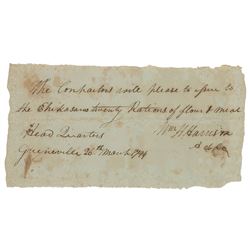 The Contractors will please to issue to
the Chickasaws twenty Rations of flour & meal
Head Quarters Wm H Harrison
Greeneville 26th March 1794 A d Camp